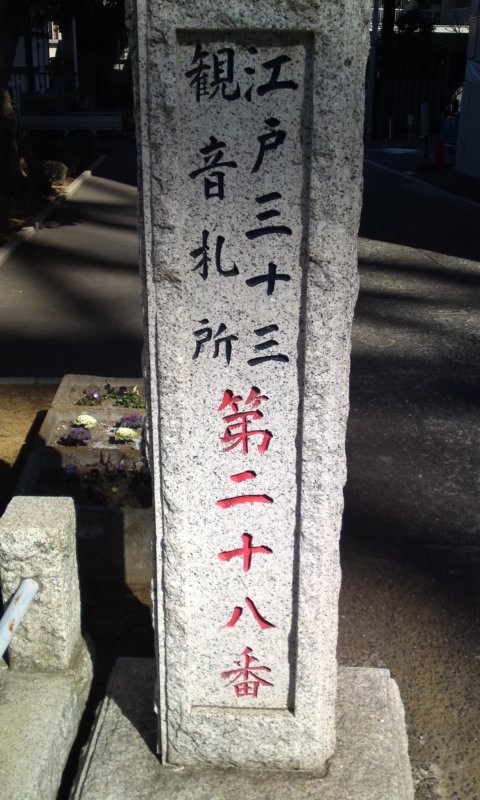 江戸三十三
観音札所
第二十八番